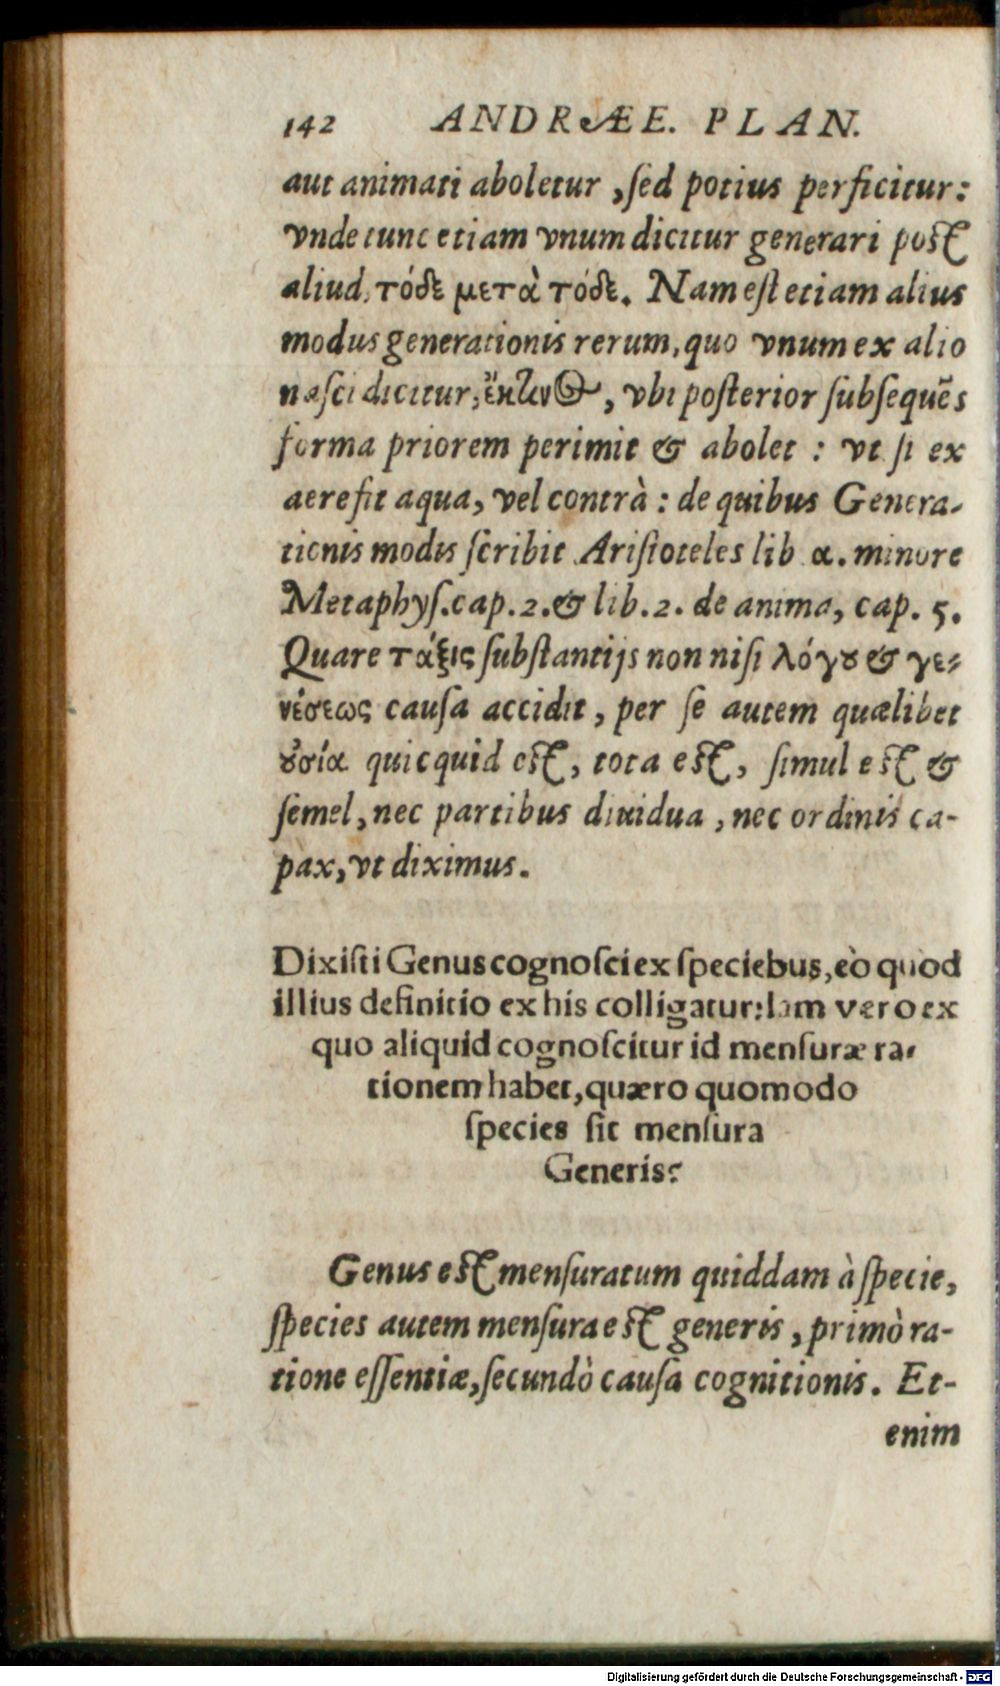 142 ANDRÆE. PLAN.
aut animati aboletur, sed potius perficitur:
vnde tunc etiam vnum dicitur generari post
aliud, τόδε μετὰ τόδε. Nam est etiam alius
modus generationis rerum, quo vnum ex alio
nasci dicitur, ἔκ τινος, vbi posterior subsequẽs
forma priorem perimit & abolet: vt si ex
aere fit aqua, vel contrà: de quibus Genera-
tionis modis scribit Aristoteles lib α. minore
Metaphys. cap. 2. & lib. 2. de anima, cap. 5.
Quare τάξις substantijs non nisi λόγȣ & γε-
νέσεως causa accidit, per se autem quælibet
ȣ̓σία quicquid est, tota est, simul est &
semel, nec partibus diuidua, nec ordinis ca-
pax, vt diximus.
Dixisti Genus cognosci ex speciebus, eò quod
illius definitio ex his colligatur: Iam vero ex
quo aliquid cognoscitur id mensuræ ra-
tionem habet, quæro quomodo
species sit mensura
Generis?
Genus est mensuratum quiddam à specie,
species autem mensura est generis, primò ra-
tione essentiæ, secundò causa cognitionis. Et-
enim
Digitalisierung gefördert durch die Deutsche Forschungsgemeinschaft - DFG